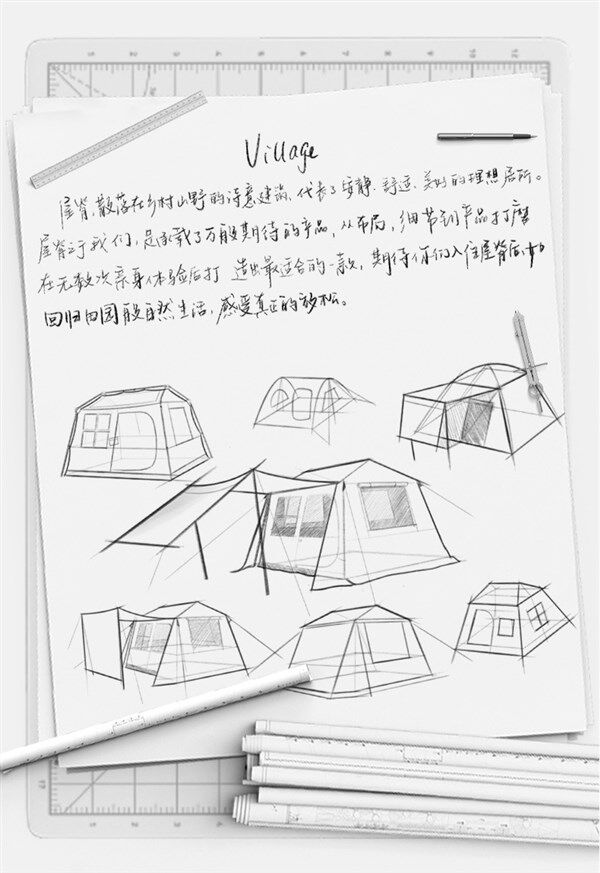 Village
屋脊,散落在乡村山野的诗意建筑,代表了安静、舒适、美好的理想居所。
屋脊于我们,是承载了万般期待的产品,从布局,细节到产品打磨
在无数次亲身体验后打 造出最适合的一款,期待你们入住屋脊后,
回归田园般自然生活,感受真正的放松。